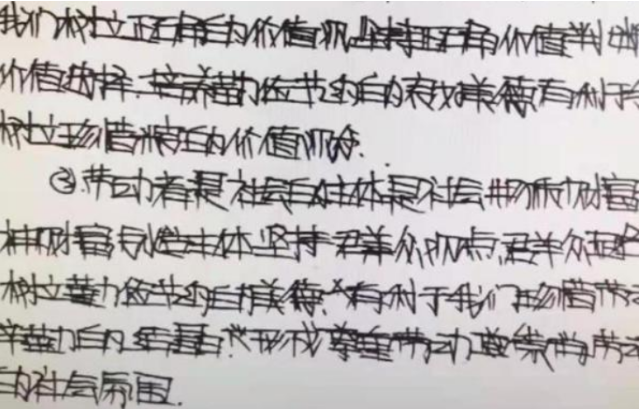 我们树立正确的价值观,坚持正确价值判断
价值选择.培养勤俭节约的良好美德有利于
树立珍惜粮食的价值观念.
②.劳动者是社会的主体是社会物质财富
精神财富创造主体.坚持群众观点,群众路
树立勤俭节约的美德.有利于我们珍惜劳
辛勤的结晶.形成尊重劳动
的社会氛围.